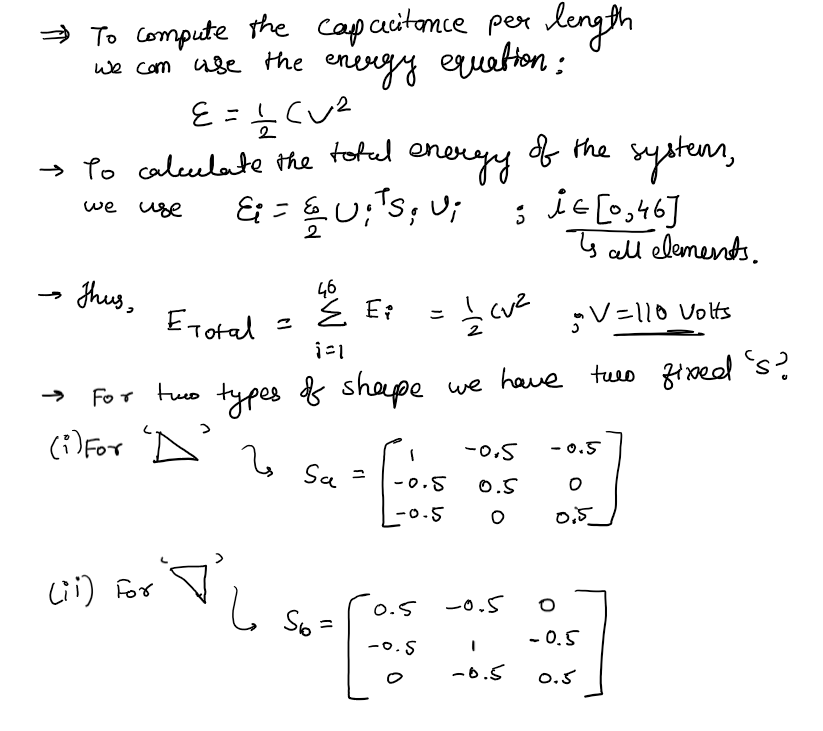 ⇒ To compute the capacitance per length
we can use the energy equation:
ℰ = 1/2 CV²
→ To calculate the total energy of the system,
we use ℰi = ε₀/2 Uᵢᵀ Sᵢ Uᵢ ; i ∈ [0,46]
↳ all elements.
→ Thus,
E_Total = Σ_{i=1}^{46} Eᵢ = 1/2 CV² ; V = 110 Volts
→ For two types of shape we have two fixed 's'
(i) For '◺' ↳ Sa = [1 -0.5 -0.5
-0.5 0.5 0
-0.5 0 0.5]
(ii) For '◹' ↳ Sb = [0.5 -0.5 0
-0.5 1 -0.5
0 -0.5 0.5]